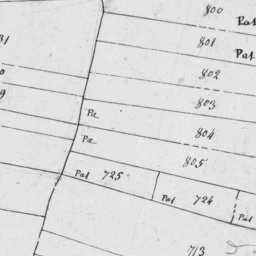 800
Pat
801
31
Pat
802
0
9
803
Pa
804
Pa
805
Pat 725
Pat 724
Pat
713